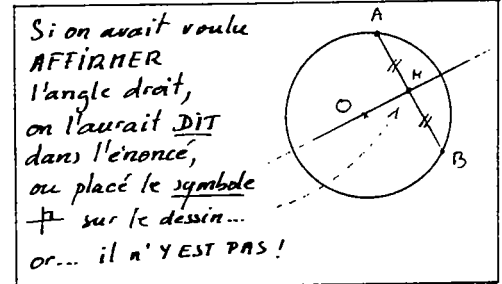 Si on avait voulu
AFFIRMER
l'angle droit,
on l'aurait DIT
dans l'énoncé,
ou placé le symbole
sur le dessin...
or... il n'Y EST PAS !
A
M
O
B